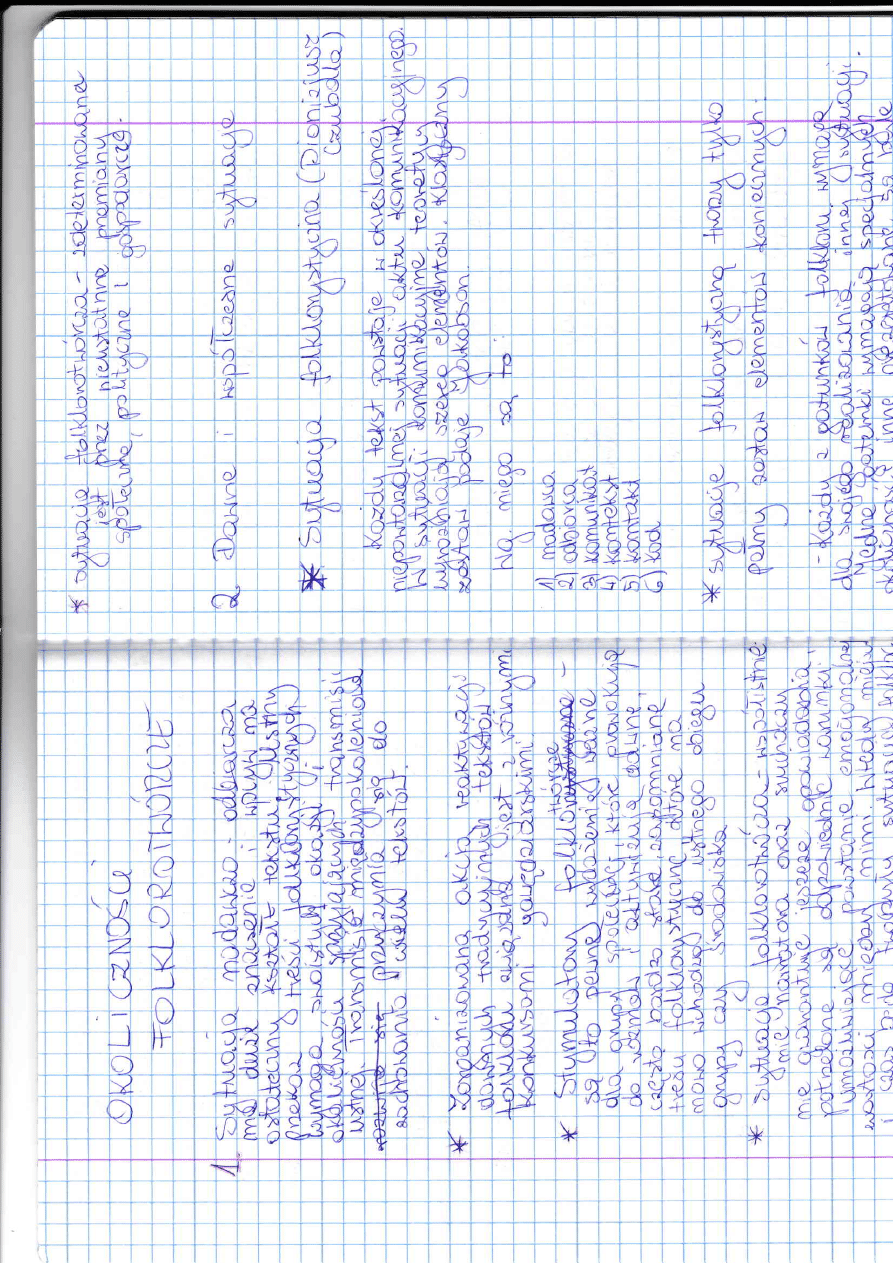 OKOLICZNOŚCI
FOLKLOROTWÓRCZE
1. Sytuacja nadawczo-odbiorcza
ma duże znaczenie i wpływ na
ostateczny kształt tekstu. Ustny
przekaz treści folklorystycznych
wymaga swoistych okazji i
okoliczności sprzyjających transmisji
ustnej. Transmisja międzypokoleniowa
przyczynia się do
zachowania wielu tekstów.
* Zorganizowana akcja reaktywacji
dawnych tradycyjnych tekstów
folkloru związana jest z różnymi
konkursami gawędziarskimi
* Stymulatory folklorotwórcze -
są to pewne wydarzenia ważne
dla grupy społecznej, które prowokują
do wzmów i aktualizują dawne,
często bardzo stare, zapomniane
treści folklorystyczne, które na
nowo wchodzą do ustnego obiegu
grupy czy środowiska
* sytuacja folklorotwórcza - współistnie-
nie narratora oraz słuchaczy
nie gwarantuje jeszcze opowiadania,
potrzebne są odpowiednie warunki
umożliwiające powstanie emocjonalnej
wartości między nimi. Wtedy miejsce
i czas będą tworzyły sytuację
* sytuacja folklorotwórcza - zdeterminowana
jest przez nieustatnne przemiany
społeczne, polityczne i gospodarcze.
2. Dawne i współczesne sytuacje
* Sytuacja folklorystyczna (Dionizjusz
Czubala)
Każdy tekst powstaje w określonej,
niepowtarzalnej sytuacji aktu komunikacyjnego.
W sytuacji komunikacyjnej teoretycy
wyróżniają szereg elementów. Klasyczny
zestaw podaje Jakobson.
Wg. niego są to:
1) nadawca
2) odbiorca
3) komunikat
4) kontekst
5) kontakt
6) kod
* sytuację folklorystyczną tworzy tylko
pełny zestaw elementów koniecznych.
- Każdy z gatunków folkloru wymaga
dla swojego realizowania innej sytuacji.
Jedne gatunki wymagają specjalnych
inne są